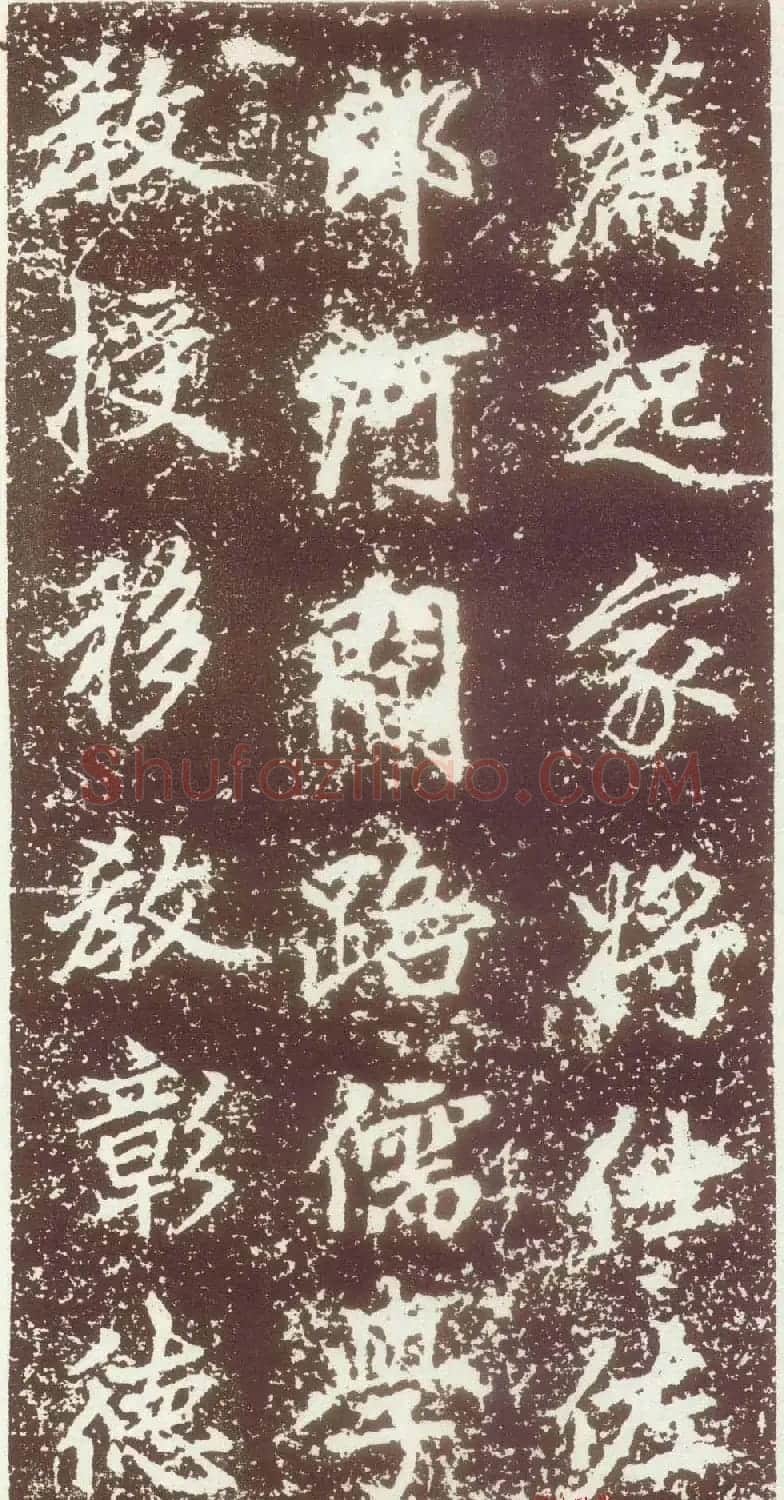 薦起家將仕佐
郎河間路儒學
教授移教彰德
Shufaziliao.COM